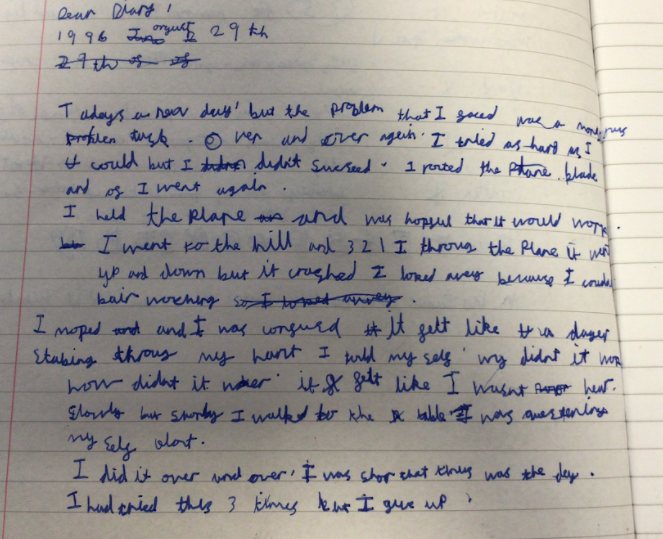 Dear Diary!
1996 orgust 29th
29th of of
Todays a new day' but the problem that I faced was a
problem task. Over and over again. I tried as hard as I
could but I didn't succeed. I rented the Plane. blade
and of I went again.
I held the Plane and was hopful that it would work.
I went to the hill and 3 2 1 I throus the Plane it went
up and down but it crashed I loked away because I couldn
bair woching so I looked away.
I moped and I was confused It felt like a dager
stabing throus my hart I told my self' wy didnt it
how didnt it it felt like I wasnt hear.
Slowly but shorly I walked to the table I was
my self alout.
I did it over and over, I was shor that this was the day.
I had tried this 3 times but I give up.